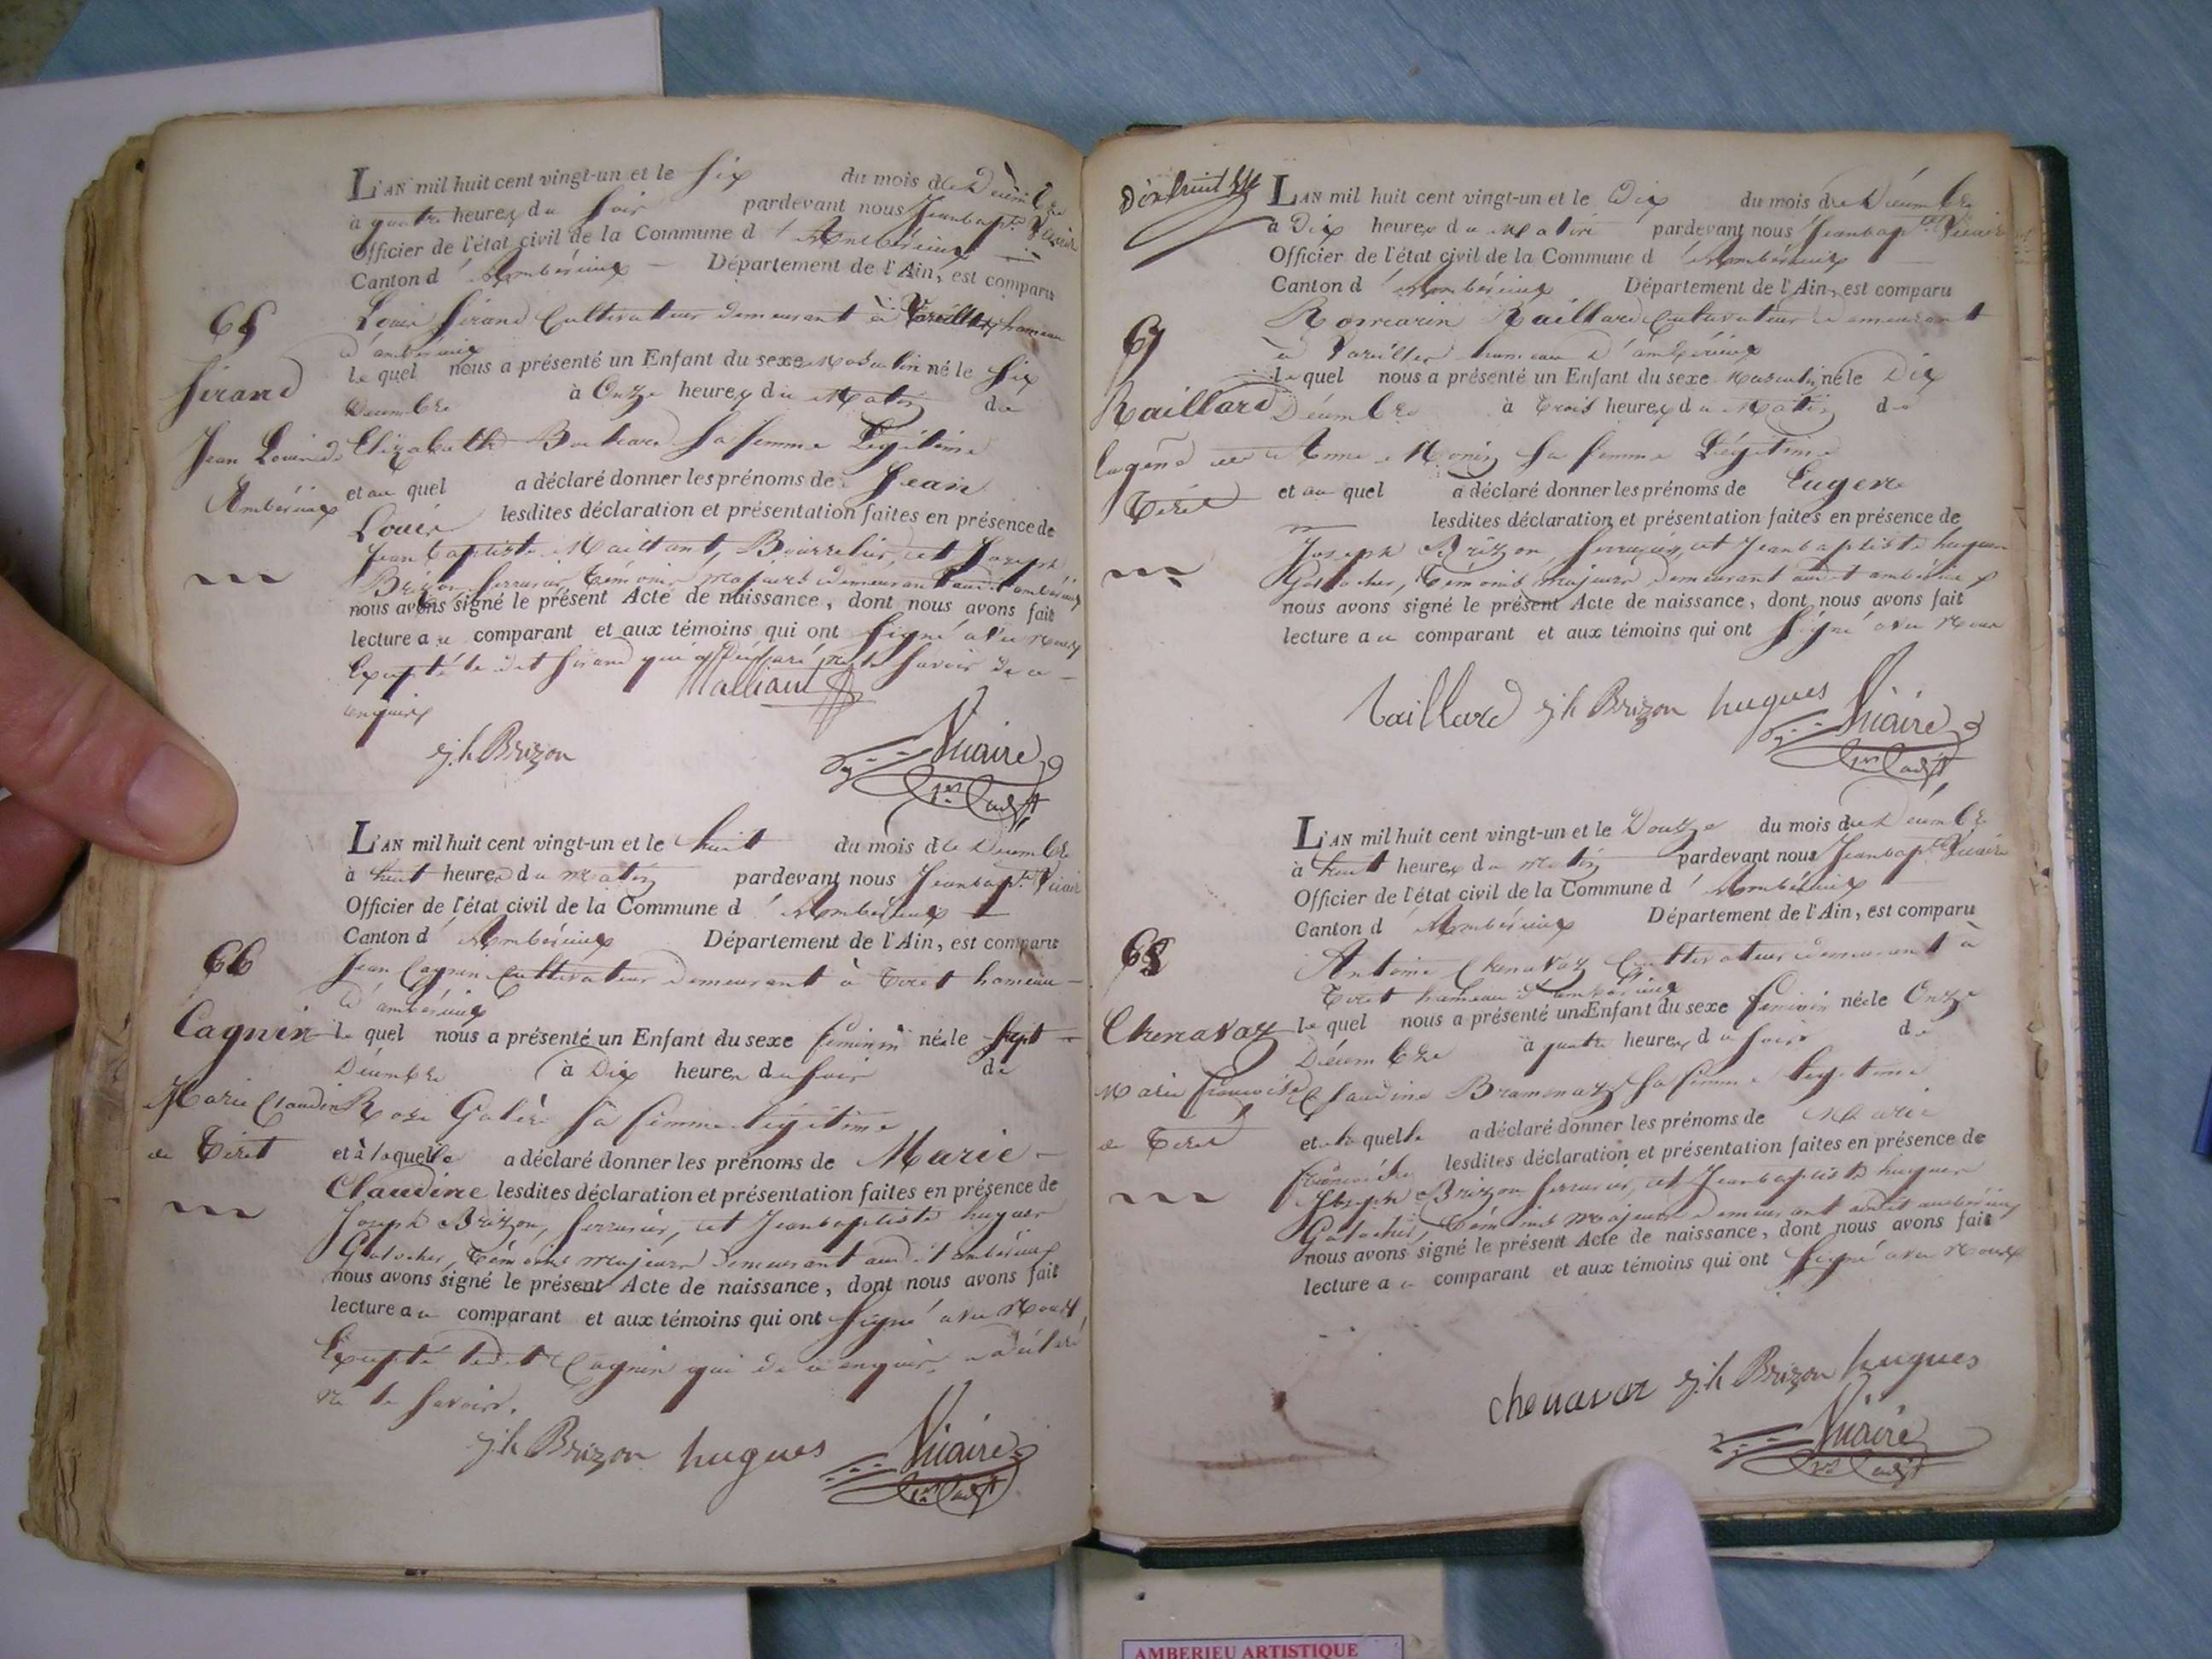 L'AN mil huit cent vingt-un et le Six du mois de Décembre
à quatre heures du Soir pardevant nous Jeanbapte Vicaire
Officier de l'état civil de la Commune d'Ambérieux
Canton d'Ambérieux Département de l'Ain, est comparu
65
Louis Sirand Cultivateur demeurant à Vareilles hameau
d'ambérieux
le quel nous a présenté un Enfant du sexe Masculin né le Six
Sirand
Décembre à Onze heures du Matin de
Jean Louis de
Elizabeth sa femme Légitime
Ambérieux
et au quel a déclaré donner les prénoms de Jean
Louis lesdites déclaration et présentation faites en présence de
Jean baptiste Maillant, Bourrelier, et Joseph
Brizon, Serrurier, témoins majeurs demeurant audit ambérieux
nous avons signé le présent Acte de naissance, dont nous avons fait
lecture au comparant et aux témoins qui ont Signé avec Nous
Excepté le dit Sirand qui a déclaré ne le Savoir de ce
enquis
Malliant
jh Brizon
Vicaire
L'AN mil huit cent vingt-un et le huit du mois de Décembre
à huit heures du matin pardevant nous Jeanbapte Vicaire
Officier de l'état civil de la Commune d'Ambérieux
Canton d'Ambérieux Département de l'Ain, est comparu
66
Jean Cagnin Cultivateur demeurant à Tiret hameau
d'ambérieux
Cagnin
le quel nous a présenté un Enfant du sexe feminin née le Sept
Décembre à Dix heures du Soir de
Marie Claudine
Rose sa femme légitime
de Tiret
et à laquelle a déclaré donner les prénoms de Marie
Claudine lesdites déclaration et présentation faites en présence de
Joseph Brizon, Serrurier, et Jeanbaptiste hugues
Galocher, témoins majeurs demeurant audit ambérieux
nous avons signé le présent Acte de naissance, dont nous avons fait
lecture au comparant et aux témoins qui ont Signé avec Nous
Excepté ledit Cagnin qui de ce enquis a déclaré
ne le Savoir.
jh Brizon hugues Vicaire
L'AN mil huit cent vingt-un et le Dix du mois de Décembre
à Dix heures du Matin pardevant nous Jeanbapte Vicaire
Officier de l'état civil de la Commune d'Ambérieux
Canton d'Ambérieux Département de l'Ain, est comparu
67
Romarin Raillard Cultivateur demeurant
à Vareilles hameau d'ambérieux
le quel nous a présenté un Enfant du sexe Masculin né le Dix
Raillard
Décembre à trois heures du Matin de
Eugène de
Anne Monin sa femme Légitime
Tiret
et au quel a déclaré donner les prénoms de Eugene
lesdites déclaration et présentation faites en présence de
Joseph Brizon, Serrurier, et Jeanbaptiste hugues
Galocher, témoins majeurs demeurant audit ambérieux
nous avons signé le présent Acte de naissance, dont nous avons fait
lecture au comparant et aux témoins qui ont Signé avec Nous
Raillard jh Brizon hugues Vicaire
L'AN mil huit cent vingt-un et le Douze du mois de Décembre
à huit heures du matin pardevant nous Jeanbapte Vicaire
Officier de l'état civil de la Commune d'Ambérieux
Canton d'Ambérieux Département de l'Ain, est comparu
68
Antoine Chenavaz Cultivateur demeurant à
Tiret hameau d'ambérieux
Chenavaz
le quel nous a présenté une Enfant du sexe feminin née le Onze
Décembre à quatre heures du Soir de
Marie françoise
Claudine Bramenaz sa femme legitime
de Tiret
et à laquelle a déclaré donner les prénoms de Marie
françoise lesdites déclaration et présentation faites en présence de
Joseph Brizon Serrurier, et Jeanbaptiste hugues
Galocher, témoins majeurs demeurant audit ambérieux
nous avons signé le présent Acte de naissance, dont nous avons fait
lecture au comparant et aux témoins qui ont Signé avec Nous
chenavaz jh Brizon hugues
Vicaire
AMBERIEU ARTISTIQUE